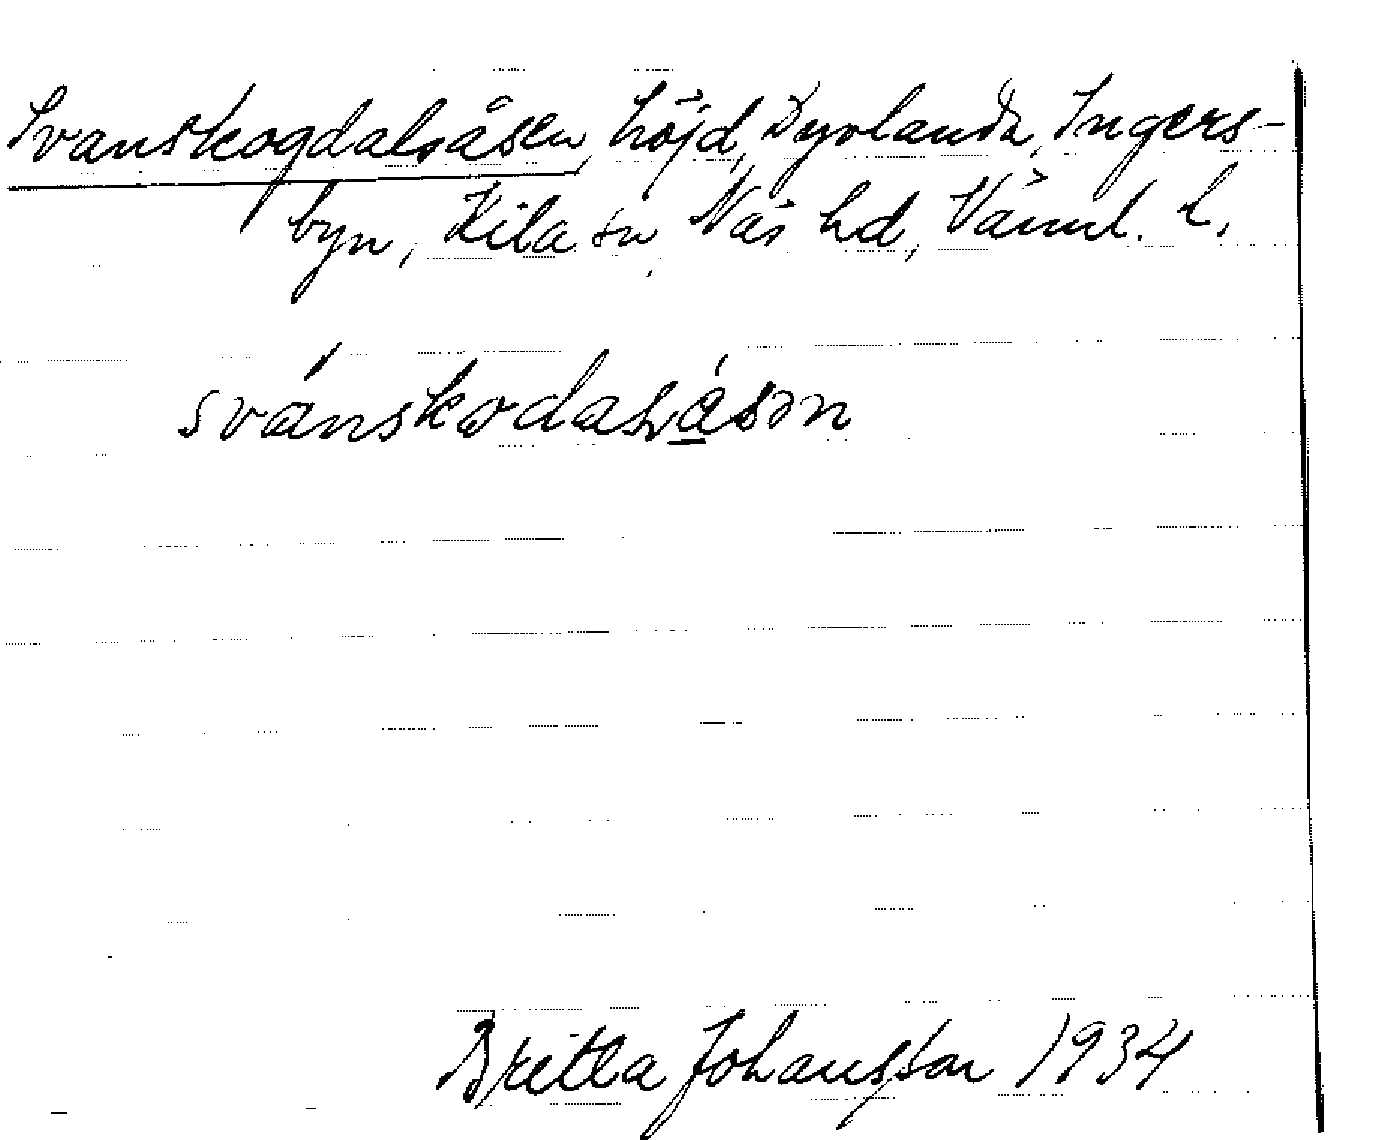 Svanskogdalsåsen, höjd, Dyrlanda, Ingers-
byn, Kila sn, Näs hd, Värml. l.
svánskodasåsən
Britta Johansson 1934